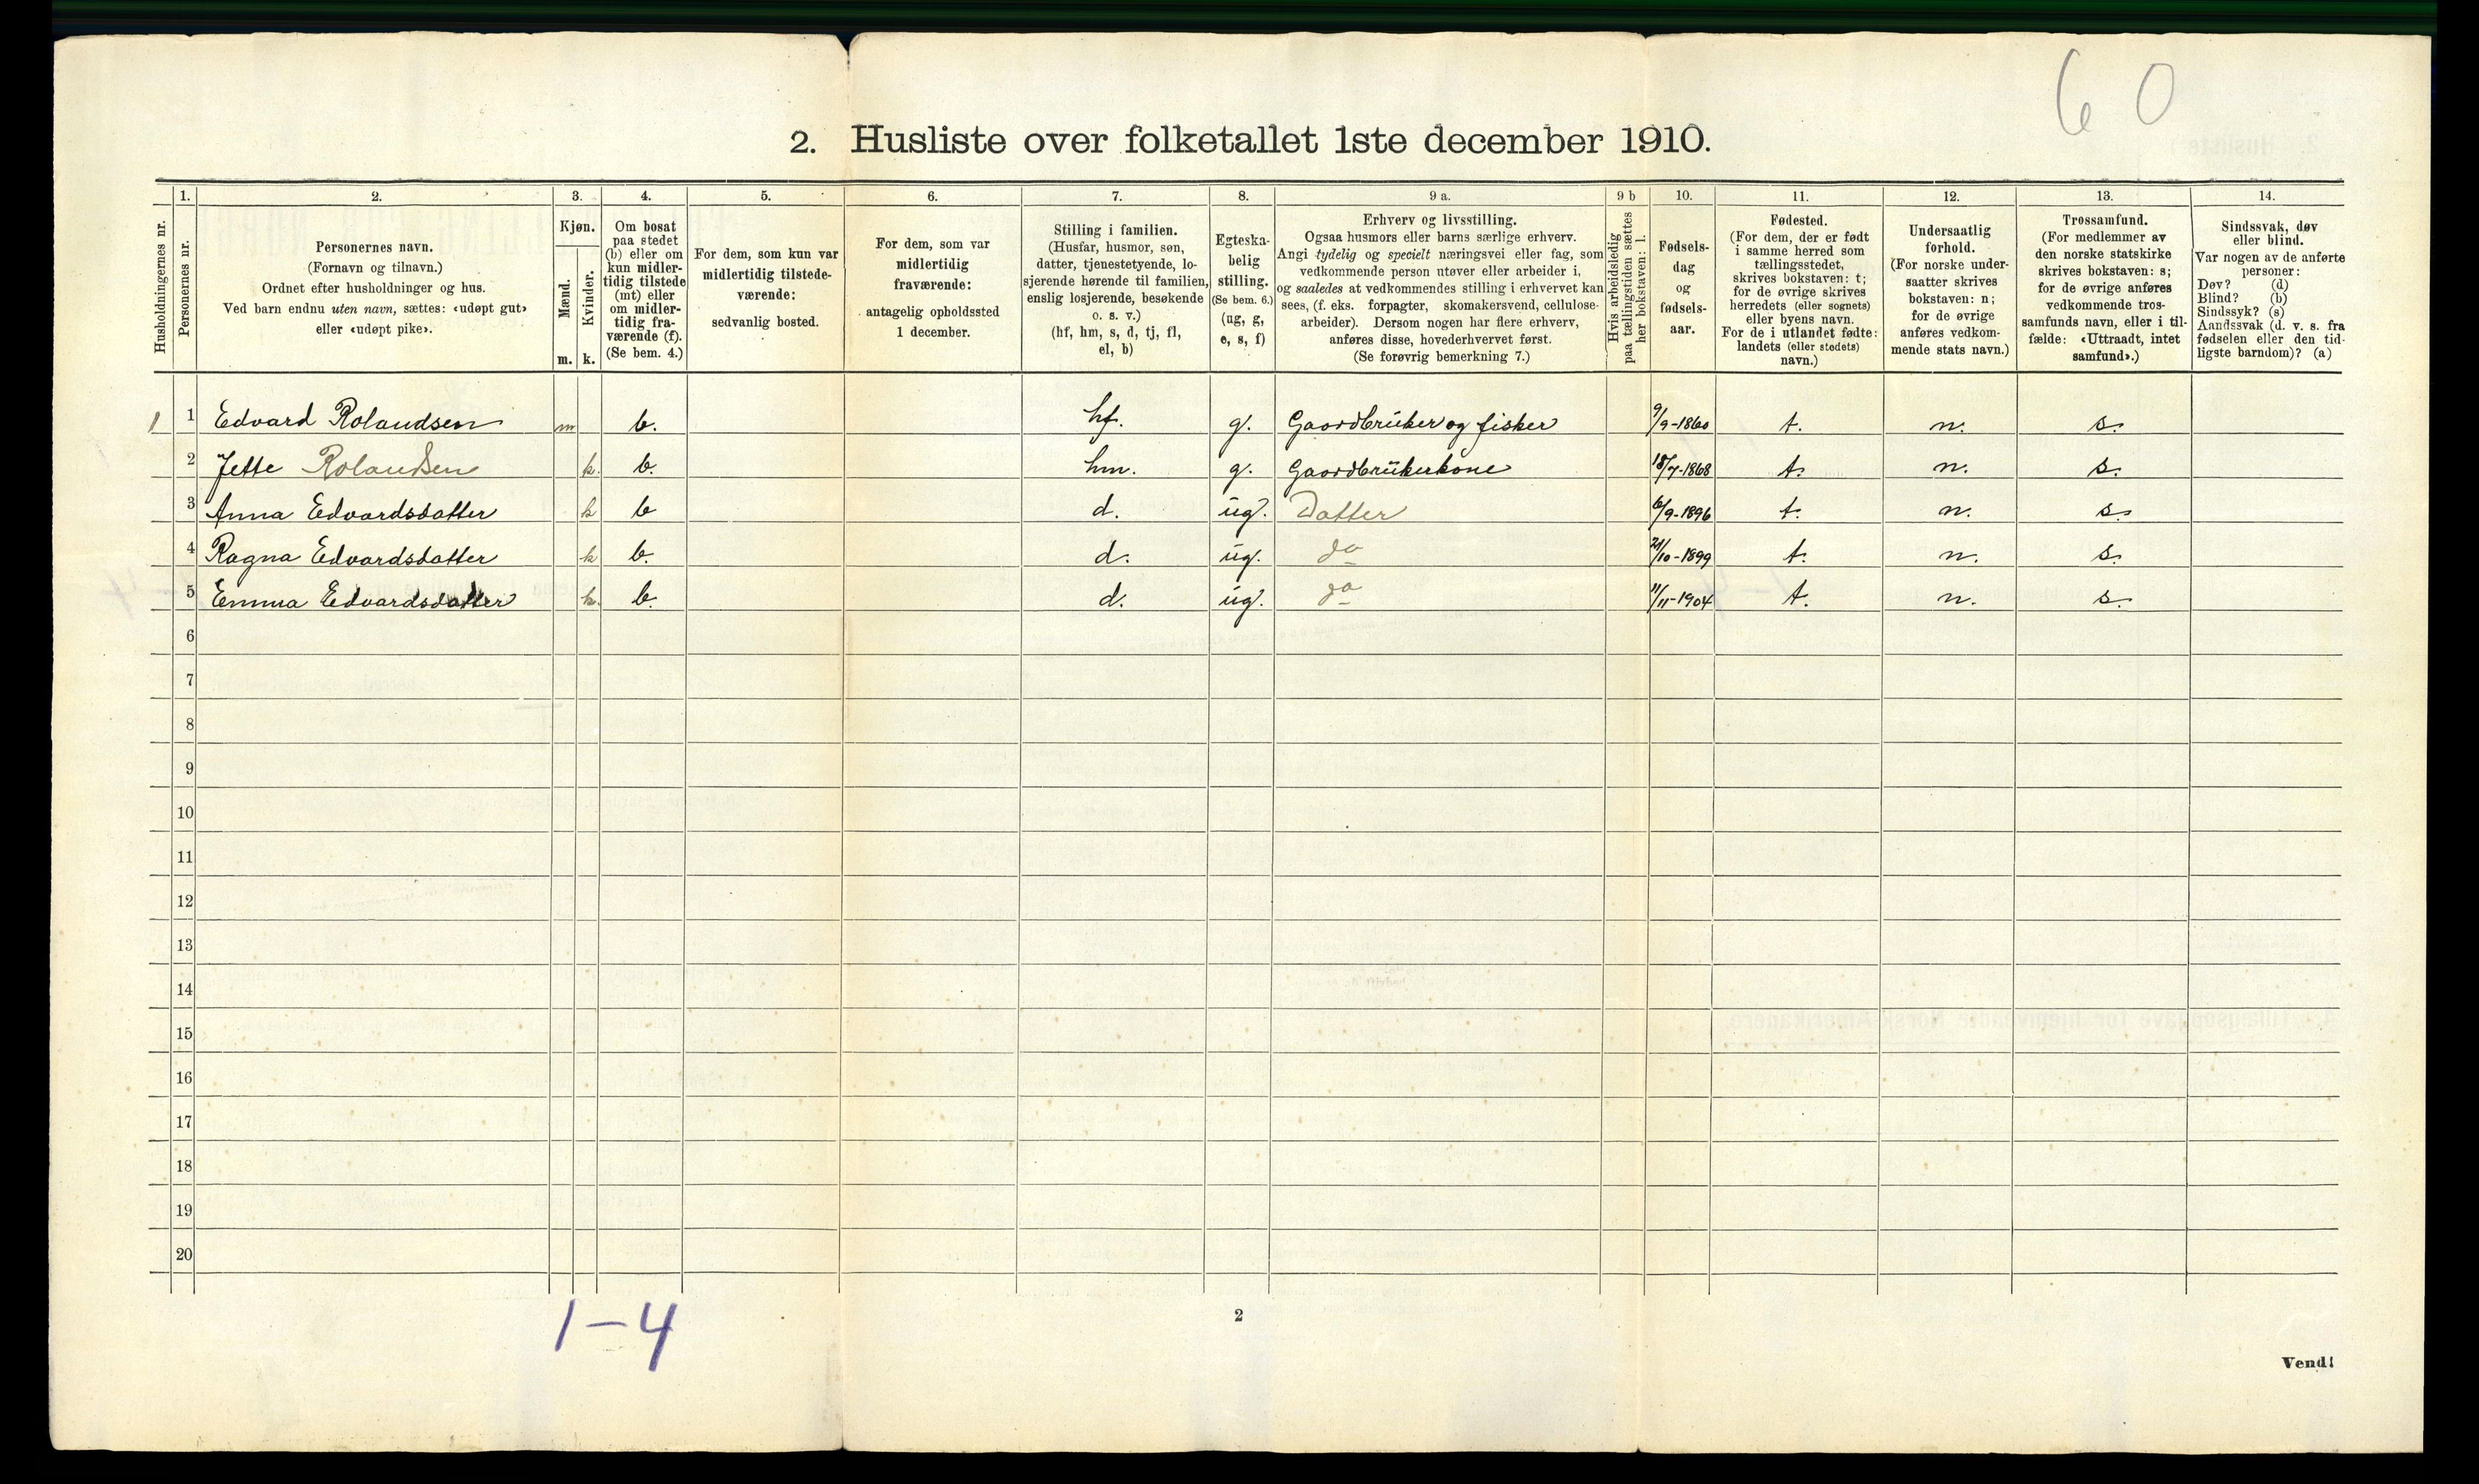 60
2. Husliste over folketallet 1ste december 1910.
1. 2. 3. 4. 5. 6. 7. 8. 9 a. 9 b 10. 11. 12. 13. 14.
Husholdningernes nr.
Personernes nr.
Personernes navn.
(Fornavn og tilnavn.)
Ordnet efter husholdninger og hus.
Ved barn endnu uten navn, sættes: «udøpt gut»
eller «udøpt pike».
Kjøn.
Mænd.
Kvinder.
m. k.
Om bosat
paa stedet
(b) eller om
kun midler-
tidig tilstede
(mt) eller
om midler-
tidig fra-
værende (f).
(Se bem. 4.)
For dem, som kun var
midlertidig tilstede-
værende:
sedvanlig bosted.
For dem, som var
midlertidig
fraværende:
antagelig opholdssted
1 december.
Stilling i familien.
(Husfar, husmor, søn,
datter, tjenestetyende, lo-
sjerende hørende til familien,
enslig losjerende, besøkende
o. s. v.)
(hf, hm, s, d, tj, fl,
el, b)
Egteska-
belig
stilling.
(Se bem. 6.)
(ug, g,
e, s, f)
Erhverv og livsstilling.
Ogsaa husmors eller barns særlige erhverv.
Angi tydelig og specielt næringsvei eller fag, som
vedkommende person utøver eller arbeider i,
og saaledes at vedkommendes stilling i erhvervet kan
sees, (f. eks. forpagter, skomakersvend, cellulose-
arbeider). Dersom nogen har flere erhverv,
anføres disse, hovederhvervet først.
(Se forøvrig bemerkning 7.)
Hvis arbeidsledig
paa tællingstiden sættes
her bokstaven: l.
Fødsels-
dag
og
fødsels-
aar.
Fødested.
(For dem, der er født
i samme herred som
tællingsstedet,
skrives bokstaven: t;
for de øvrige skrives
herredets (eller sognets)
eller byens navn.
For de i utlandet fødte:
landets (eller stedets)
navn.)
Undersaatlig
forhold.
(For norske under-
saatter skrives
bokstaven: n;
for de øvrige
anføres vedkom-
mende stats navn.)
Trossamfund.
(For medlemmer av
den norske statskirke
skrives bokstaven: s;
for de øvrige anføres
vedkommende tros-
samfunds navn, eller i til-
fælde: «Uttraadt, intet
samfund».)
Sindssvak, døv
eller blind.
Var nogen av de anførte
personer:
Døv? (d)
Blind? (b)
Sindssyk? (s)
Aandssvak (d. v. s. fra
fødselen eller den tid-
ligste barndom)? (a)
1 1 Edvard Rolandsen m b. hf. g. Gaardbruker og fisker 9/9-1860 t. n. s.
2 Jette Rolandsen k. b. hm. g. Gaardbrukerkone 18/7-1868 t. n. s.
3 Anna Edvardsdatter k b d. ug. Datter 6/9-1896 t. n. s.
4 Ragna Edvardsdatter k b. d. ug. do 21/10-1899 t. n. s.
5 Emma Edvardsdatter k. b. d. ug. do 11/11-1904 t. n. s.
6
7
8
9
10
11
12
13
14
15
16
17
18
19
20
1-4
2
Vend!